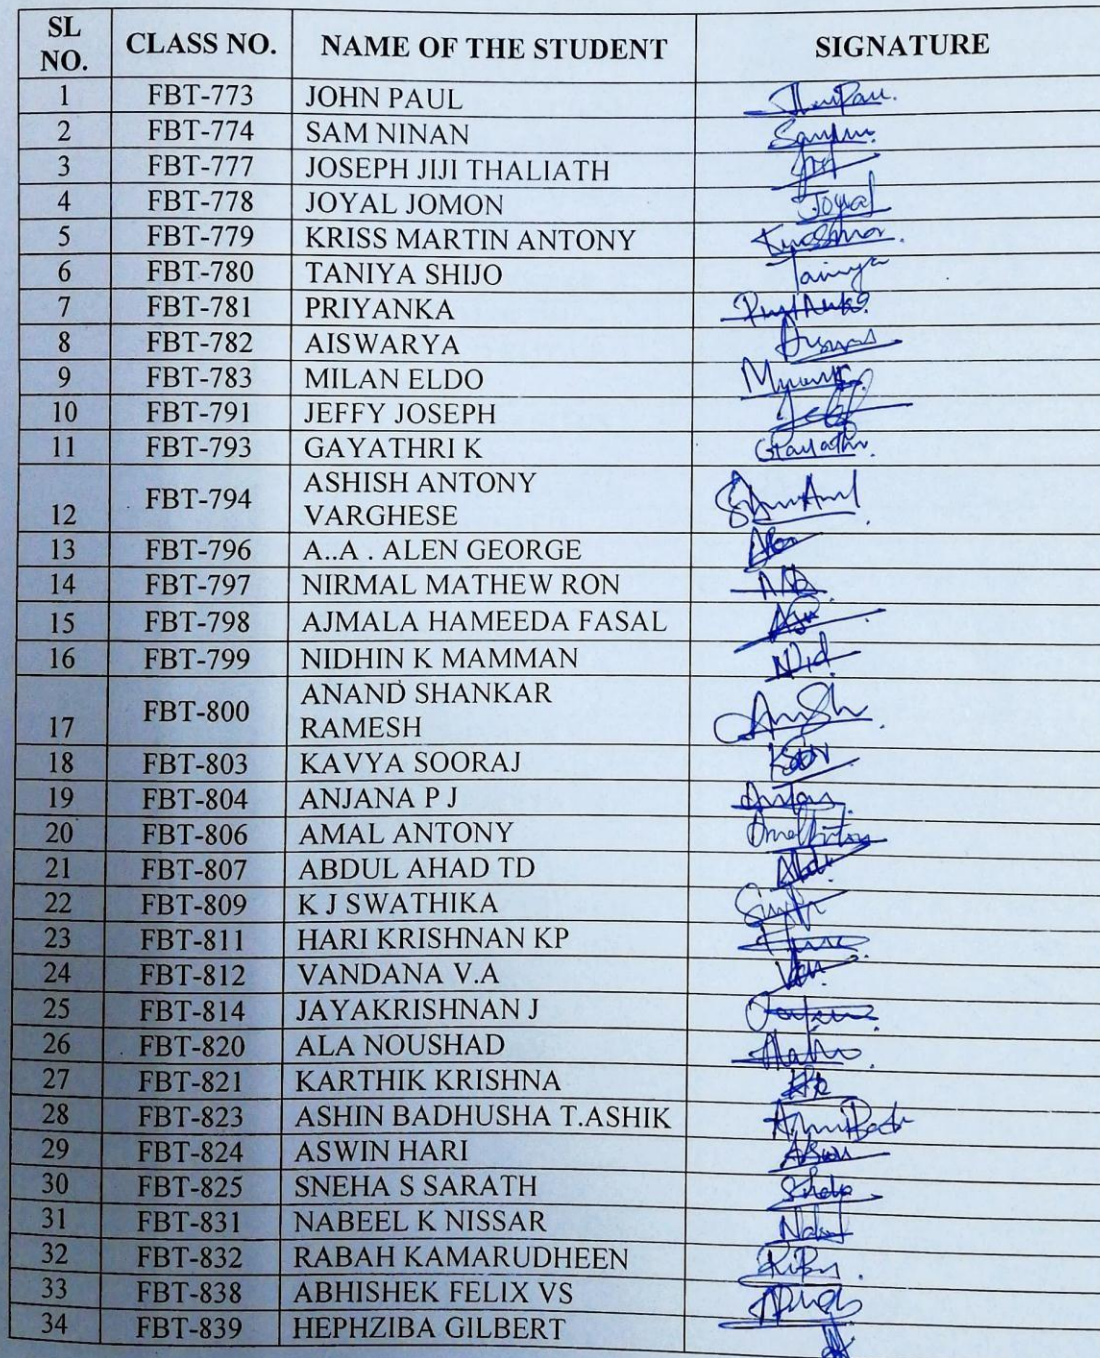 SL NO. CLASS NO. NAME OF THE STUDENT SIGNATURE
1 FBT-773 JOHN PAUL
2 FBT-774 SAM NINAN
3 FBT-777 JOSEPH JIJI THALIATH
4 FBT-778 JOYAL JOMON Joyal
5 FBT-779 KRISS MARTIN ANTONY
6 FBT-780 TANIYA SHIJO Taniya
7 FBT-781 PRIYANKA
8 FBT-782 AISWARYA
9 FBT-783 MILAN ELDO
10 FBT-791 JEFFY JOSEPH
11 FBT-793 GAYATHRI K Gayathri
12 FBT-794 ASHISH ANTONY VARGHESE
13 FBT-796 A..A . ALEN GEORGE
14 FBT-797 NIRMAL MATHEW RON
15 FBT-798 AJMALA HAMEEDA FASAL
16 FBT-799 NIDHIN K MAMMAN Nid
17 FBT-800 ANAND SHANKAR RAMESH
18 FBT-803 KAVYA SOORAJ
19 FBT-804 ANJANA P J
20 FBT-806 AMAL ANTONY
21 FBT-807 ABDUL AHAD TD
22 FBT-809 K J SWATHIKA
23 FBT-811 HARI KRISHNAN KP
24 FBT-812 VANDANA V.A
25 FBT-814 JAYAKRISHNAN J
26 FBT-820 ALA NOUSHAD
27 FBT-821 KARTHIK KRISHNA
28 FBT-823 ASHIN BADHUSHA T.ASHIK
29 FBT-824 ASWIN HARI
30 FBT-825 SNEHA S SARATH
31 FBT-831 NABEEL K NISSAR
32 FBT-832 RABAH KAMARUDHEEN
33 FBT-838 ABHISHEK FELIX VS
34 FBT-839 HEPHZIBA GILBERT